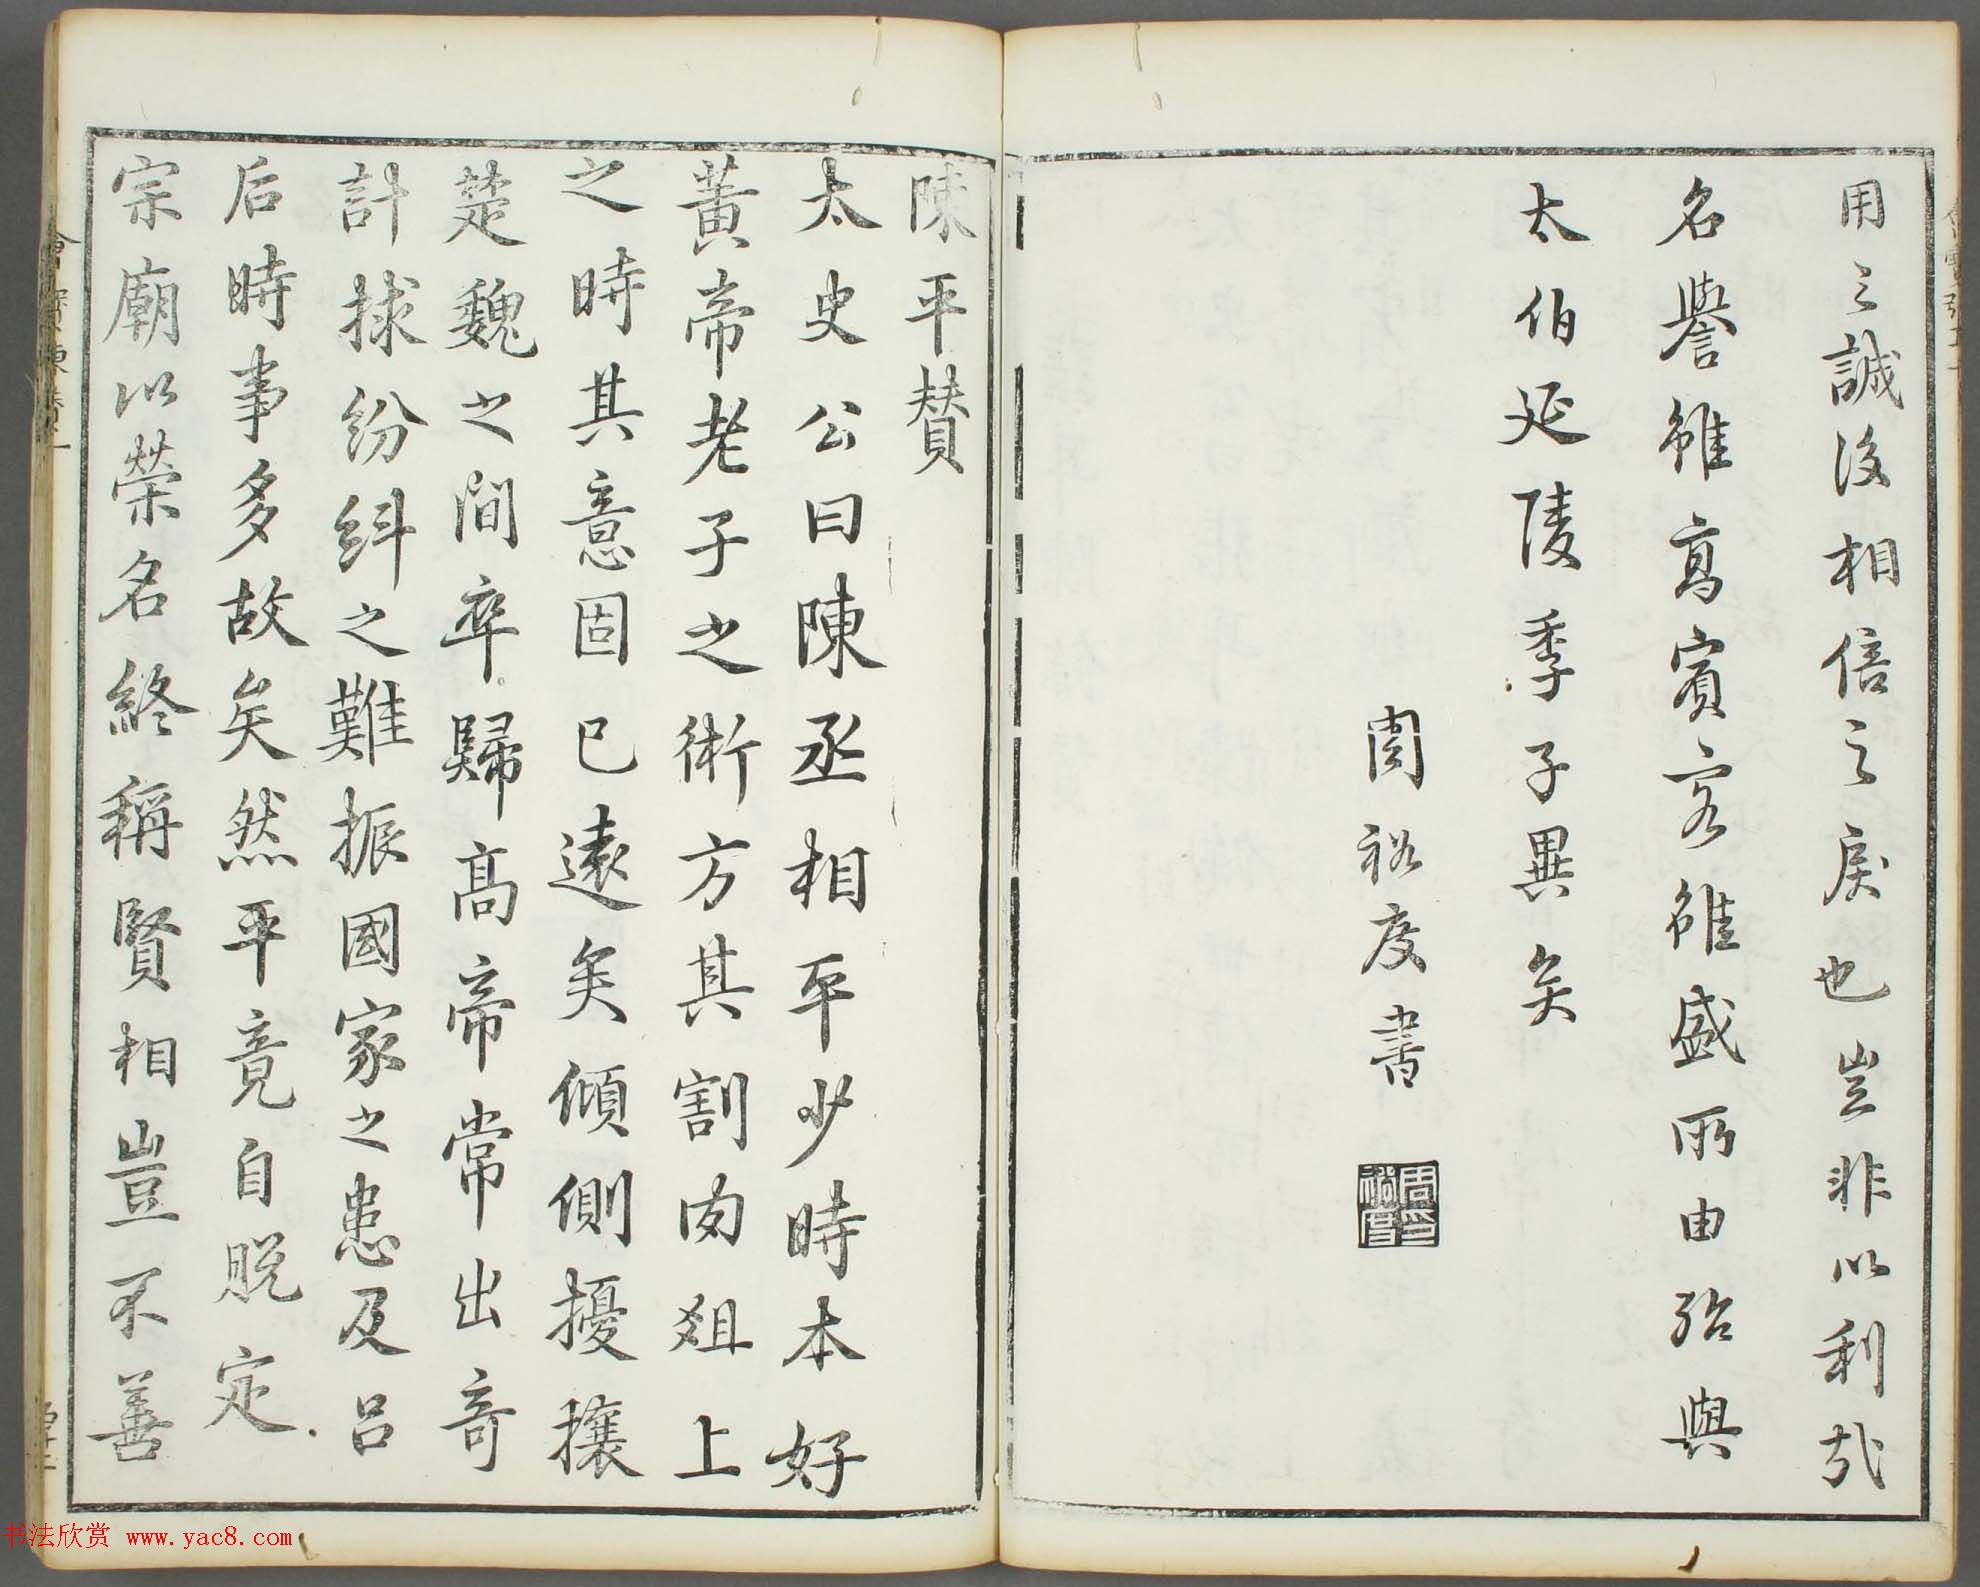 用之誠後相倍之戾也豈非以利哉
名譽雖高賓客雖盛所由殆與
太伯延陵季子異矣
周裕度書
陳平贊
太史公曰陳丞相平少時本好
黃帝老子之術方其割肉俎上
之時其意固已遠矣傾側擾攘
楚魏之間卒歸高帝常出奇
計捄紛糾之難振國家之患及呂
后時事多故矣然平竟自脫定
宗廟以榮名終稱賢相豈不善
书法欣赏 www.yac8.com